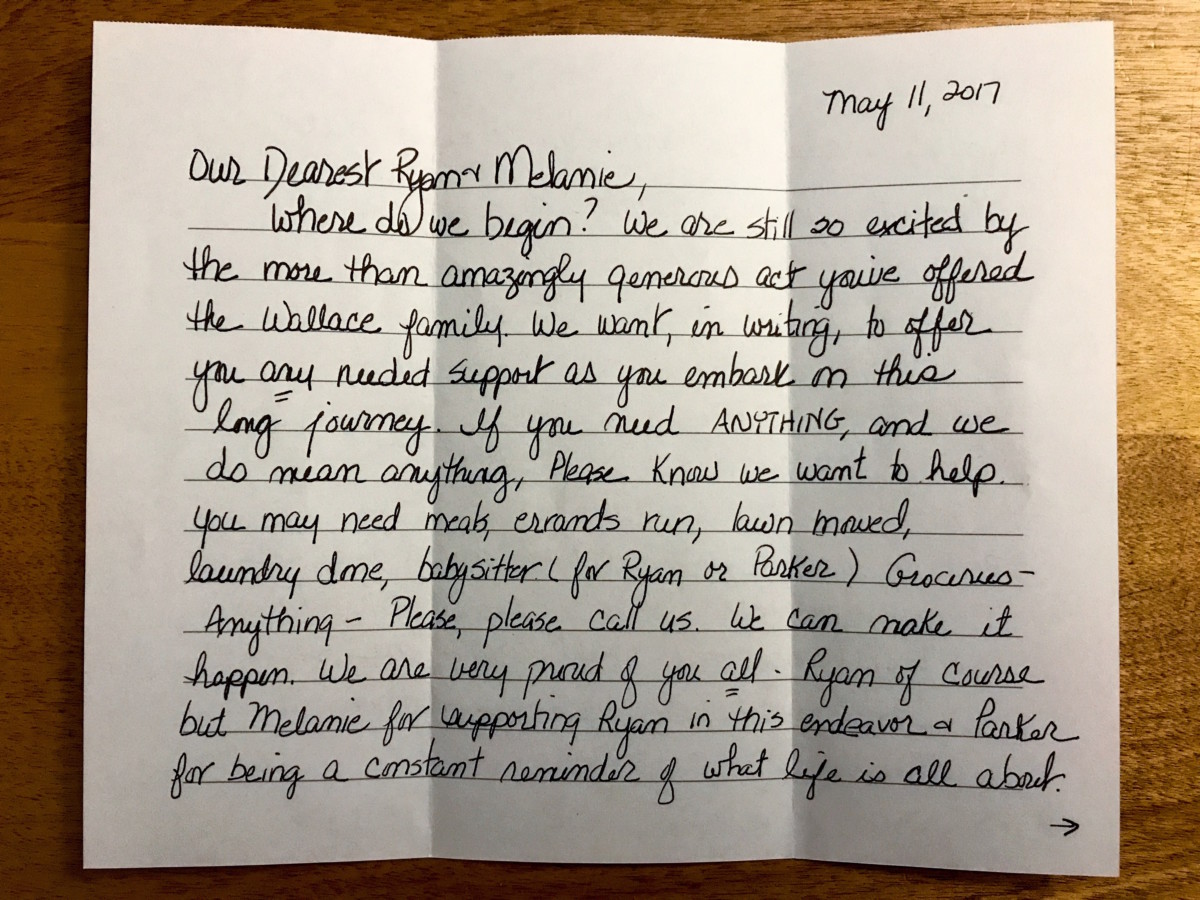 May 11, 2017
Our Dearest Ryan & Melanie,
Where do we begin? We are still so excited by
the more than amazingly generous act you've offered
the Wallace family. We want, in writing, to offer
you any needed support as you embark on this
long journey. If you need ANYTHING, and we
do mean anything, Please Know we want to help.
You may need meals, errands run, lawn mowed,
laundry done, babysitter (for Ryan or Parker) Groceries-
Anything - Please, please call us. We can make it
happen. We are very proud of you all. Ryan of course
but Melanie for supporting Ryan in this endeavor & Parker
for being a constant reminder of what life is all about.
→